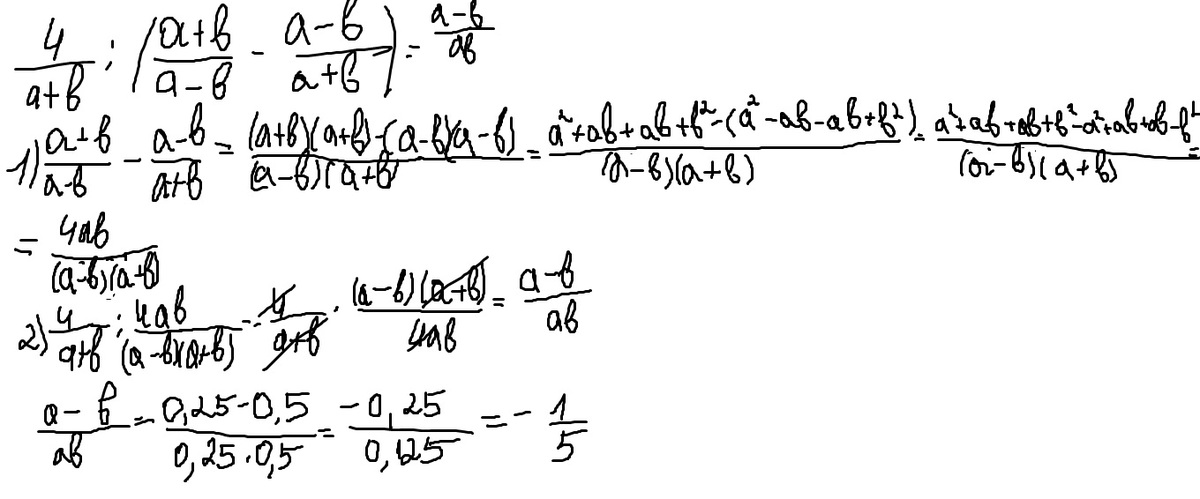 4/(a+b) : ((a+b)/(a-b) - (a-b)/(a+b)) = (a-b)/(ab)
1) (a+b)/(a-b) - (a-b)/(a+b) = ((a+b)(a+b)-(a-b)(a-b))/((a-b)(a+b)) = (a²+ab+ab+b²-(a²-ab-ab+b²))/((a-b)(a+b)) = (a²+ab+ab+b²-a²+ab+ab-b²)/((a-b)(a+b)) =
= 4ab/((a-b)(a+b))
2) 4/(a+b) : 4ab/((a-b)(a+b)) = 4/(a+b) · ((a-b)(a+b))/(4ab) = (a-b)/(ab)
(a-b)/(ab) = (0,25-0,5)/(0,25·0,5) = (-0,25)/(0,125) = -1/5